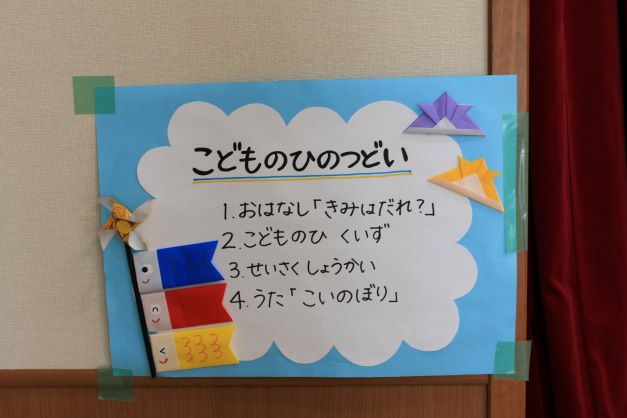 こどものひのつどい
1.おはなし「きみはだれ?」
2.こどものひ くいず
3.せいさくしょうかい
4.うた「こいのぼり」